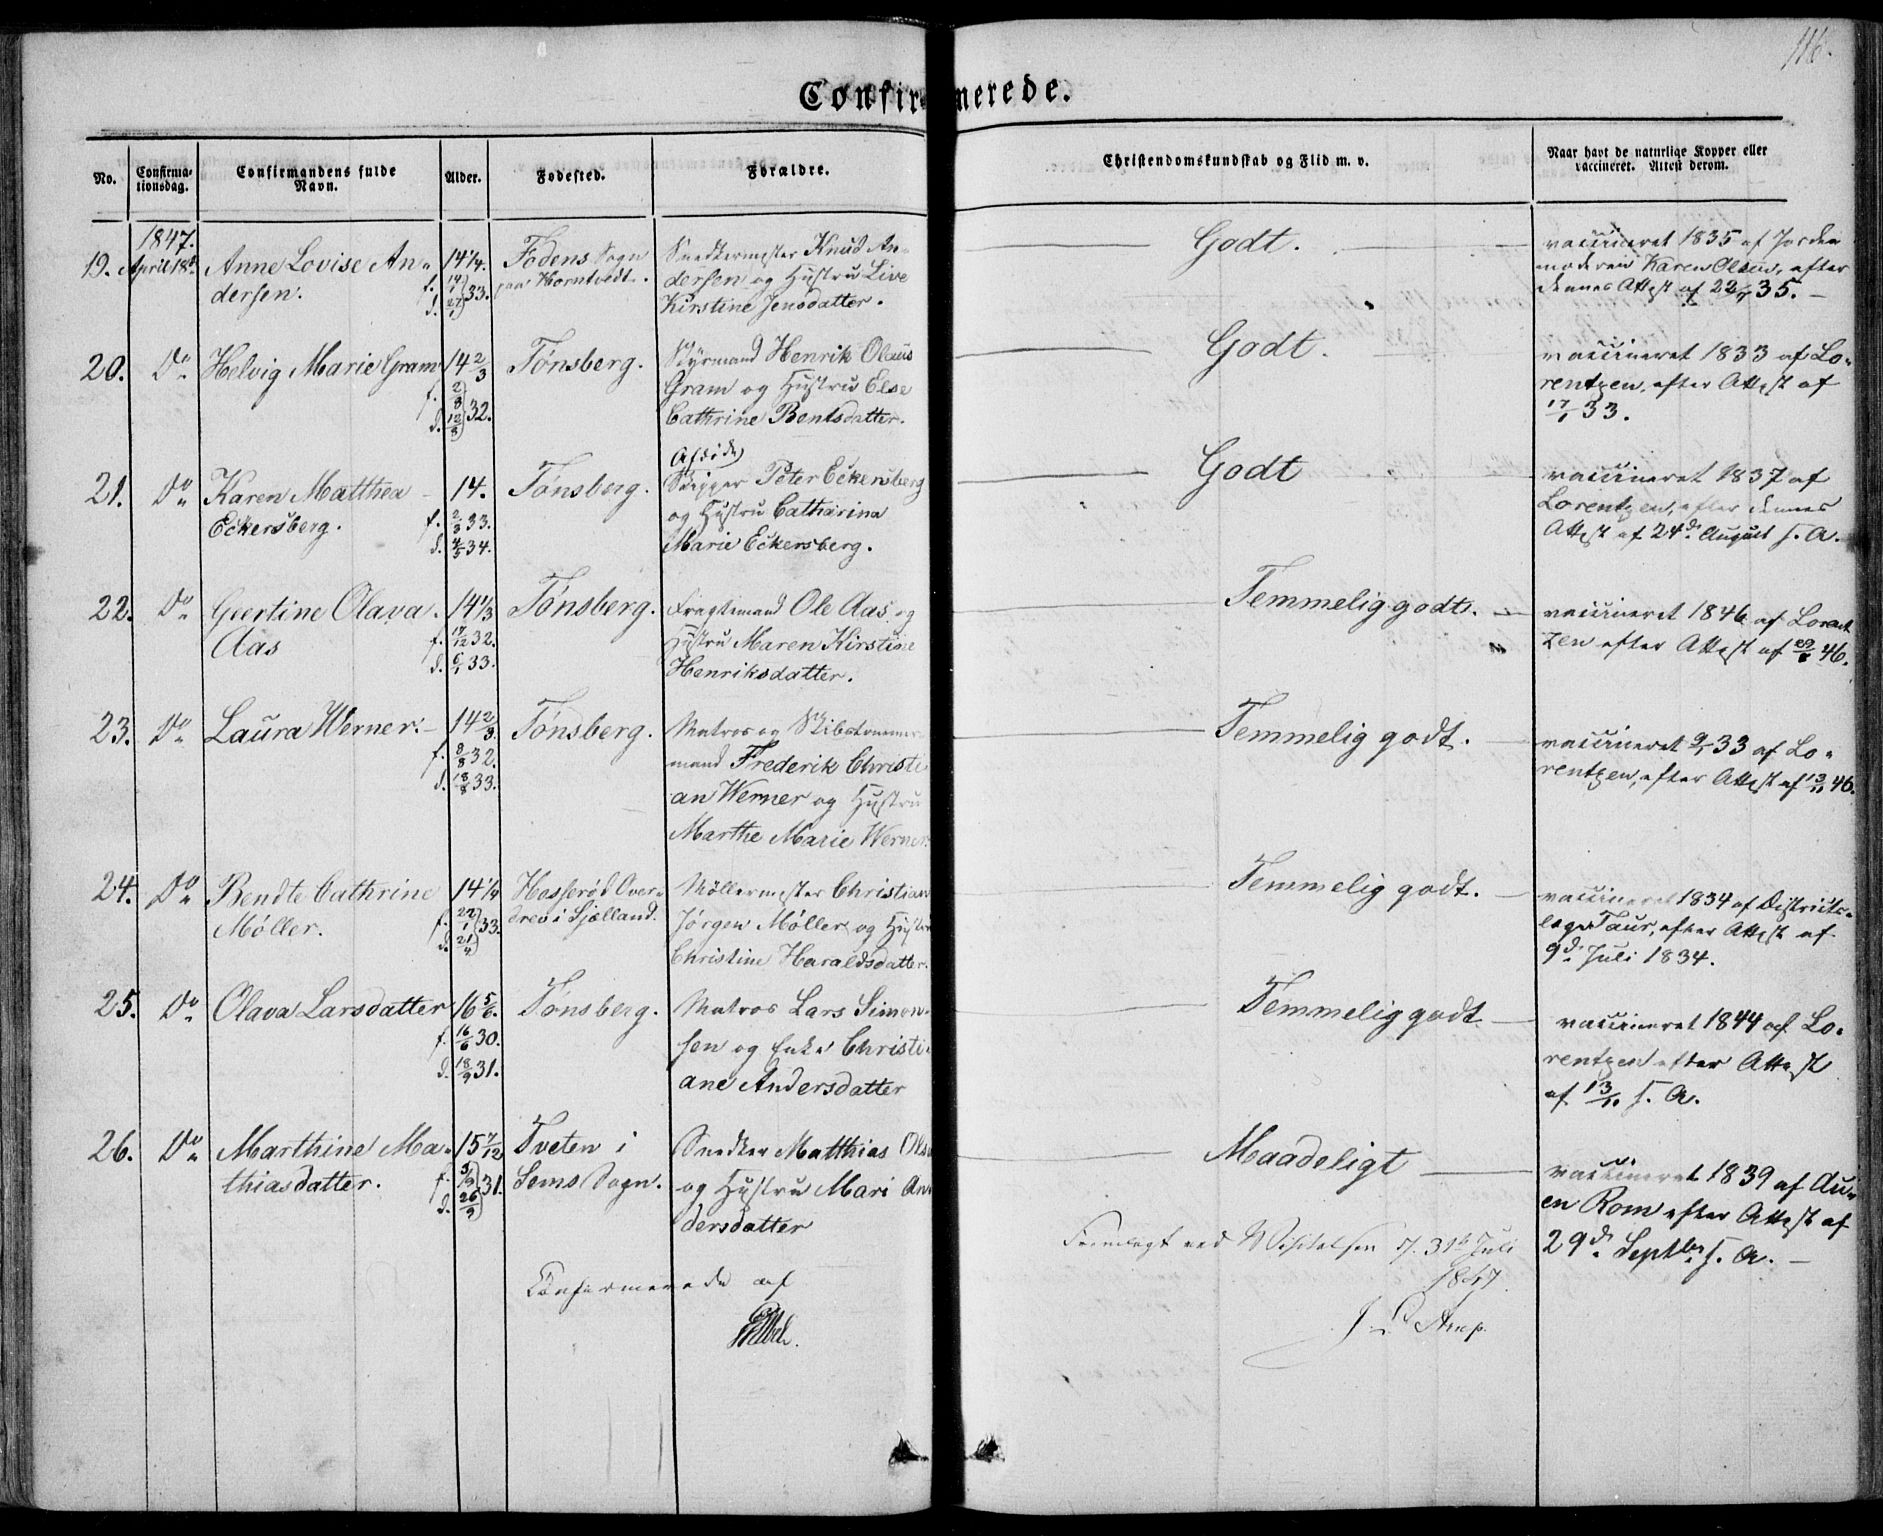 116.
Confirmerede.
No.
Confirma-
tionsdag.
Confirmandens fulde
Navn.
Alder.
Fødested.
Forældre.
Christendomskundskab og Flid m. v.
Naar havt de naturlige Kopper eller
vaccineret. Attest derom.
1847.
19. April 18d. Anne Lovise An-
dersen.
14 1/4.
f. 14/1
d. 27/1 } 33.
Fodens Sogn
paa Horntvedt.
Snedkermester Knud An-
dersen og Hustru Live
Kirstine Jensdatter.
Godt.
vaccineret 1835 af Jorde-
moderen Karen Olsen, efter
dennes Attest af 22/7 35.
20. Do Helvig Marie Gram
14 2/3
f. 2/8
d. 12/8 } 32.
Tønsberg.
Styrmand Henrik Olaus
Gram og Hustru Else
Cathrine Bentsdatter.
Godt.
vaccineret 1833 af Lo-
rentzen, efter Attest af
17/1 33.
21. Do Karen Matthea
Eckersberg.
14.
f. 2/3 33.
d. 4/5 34.
Tønsberg.
Afdøde
Skipper Peter Eckersberg
og Hustru Catharina
Marie Eckersberg.
Godt
vaccineret 1837 af
Lorentzen, efter dennes
Attest af 24d. August s. A.
22. Do Geertine Olava
Aas
14 1/3
f. 17/12 32.
d. 6/1 33.
Tønsberg.
Fragtemand Ole Aas og
Hustru Maren Kirstine
Henriksdatter.
Temmelig godt.
vaccineret 1846 af Lorent
zen efter Attest af 29/8 46.
23. Do Laura Werner.
14 2/3.
f. 8/8 32.
d. 18/8 33.
Tønsberg.
Matros og Skibstømmer-
mand Frederik Christi
an Werner og Hustru
Marthe Marie Werner.
Temmelig godt.
vaccineret 9/1 33 af Lo-
rentzen, efter Attest af 13/11 46.
24. Do Bendte Cathrine
Møller.
14 1/4
f. 22/1
d. 21/4 } 33.
Hasserød Over-
drev i Sjælland.
Møllermester Christian
Jørgen Møller og Hustru
Christine Haraldsdatter.
Temmelig godt.
vaccineret 1834 af Districts-
læge Taur, efter Attest af
9d. Juli 1834.
25. Do Olava Larsdatter
16 5/6.
f. 16/6 30.
d. 18/9 31.
Tønsberg.
Matros Lars Simon-
sen og Enke Christi-
ane Andersdatter
Temmelig godt
vaccineret 1844 af Lo-
rentzen efter Attest
af 13/10 s. A.
26. Do Marthine Ma-
thiasdatter.
15 7/12
f. 3/9
d. 26/9 } 31.
Tveten i
Sems Sogn.
Snedker Matthias Olsen
og Hustru Mari An
dersdatter
Maadeligt
vaccineret 1839 af Au-
en Rom efter Attest af
29d. Septbr s. A.
Confirmerede af
Fremlagt ved Visitatsen d. 31te Juli
1847.
J L Arup.